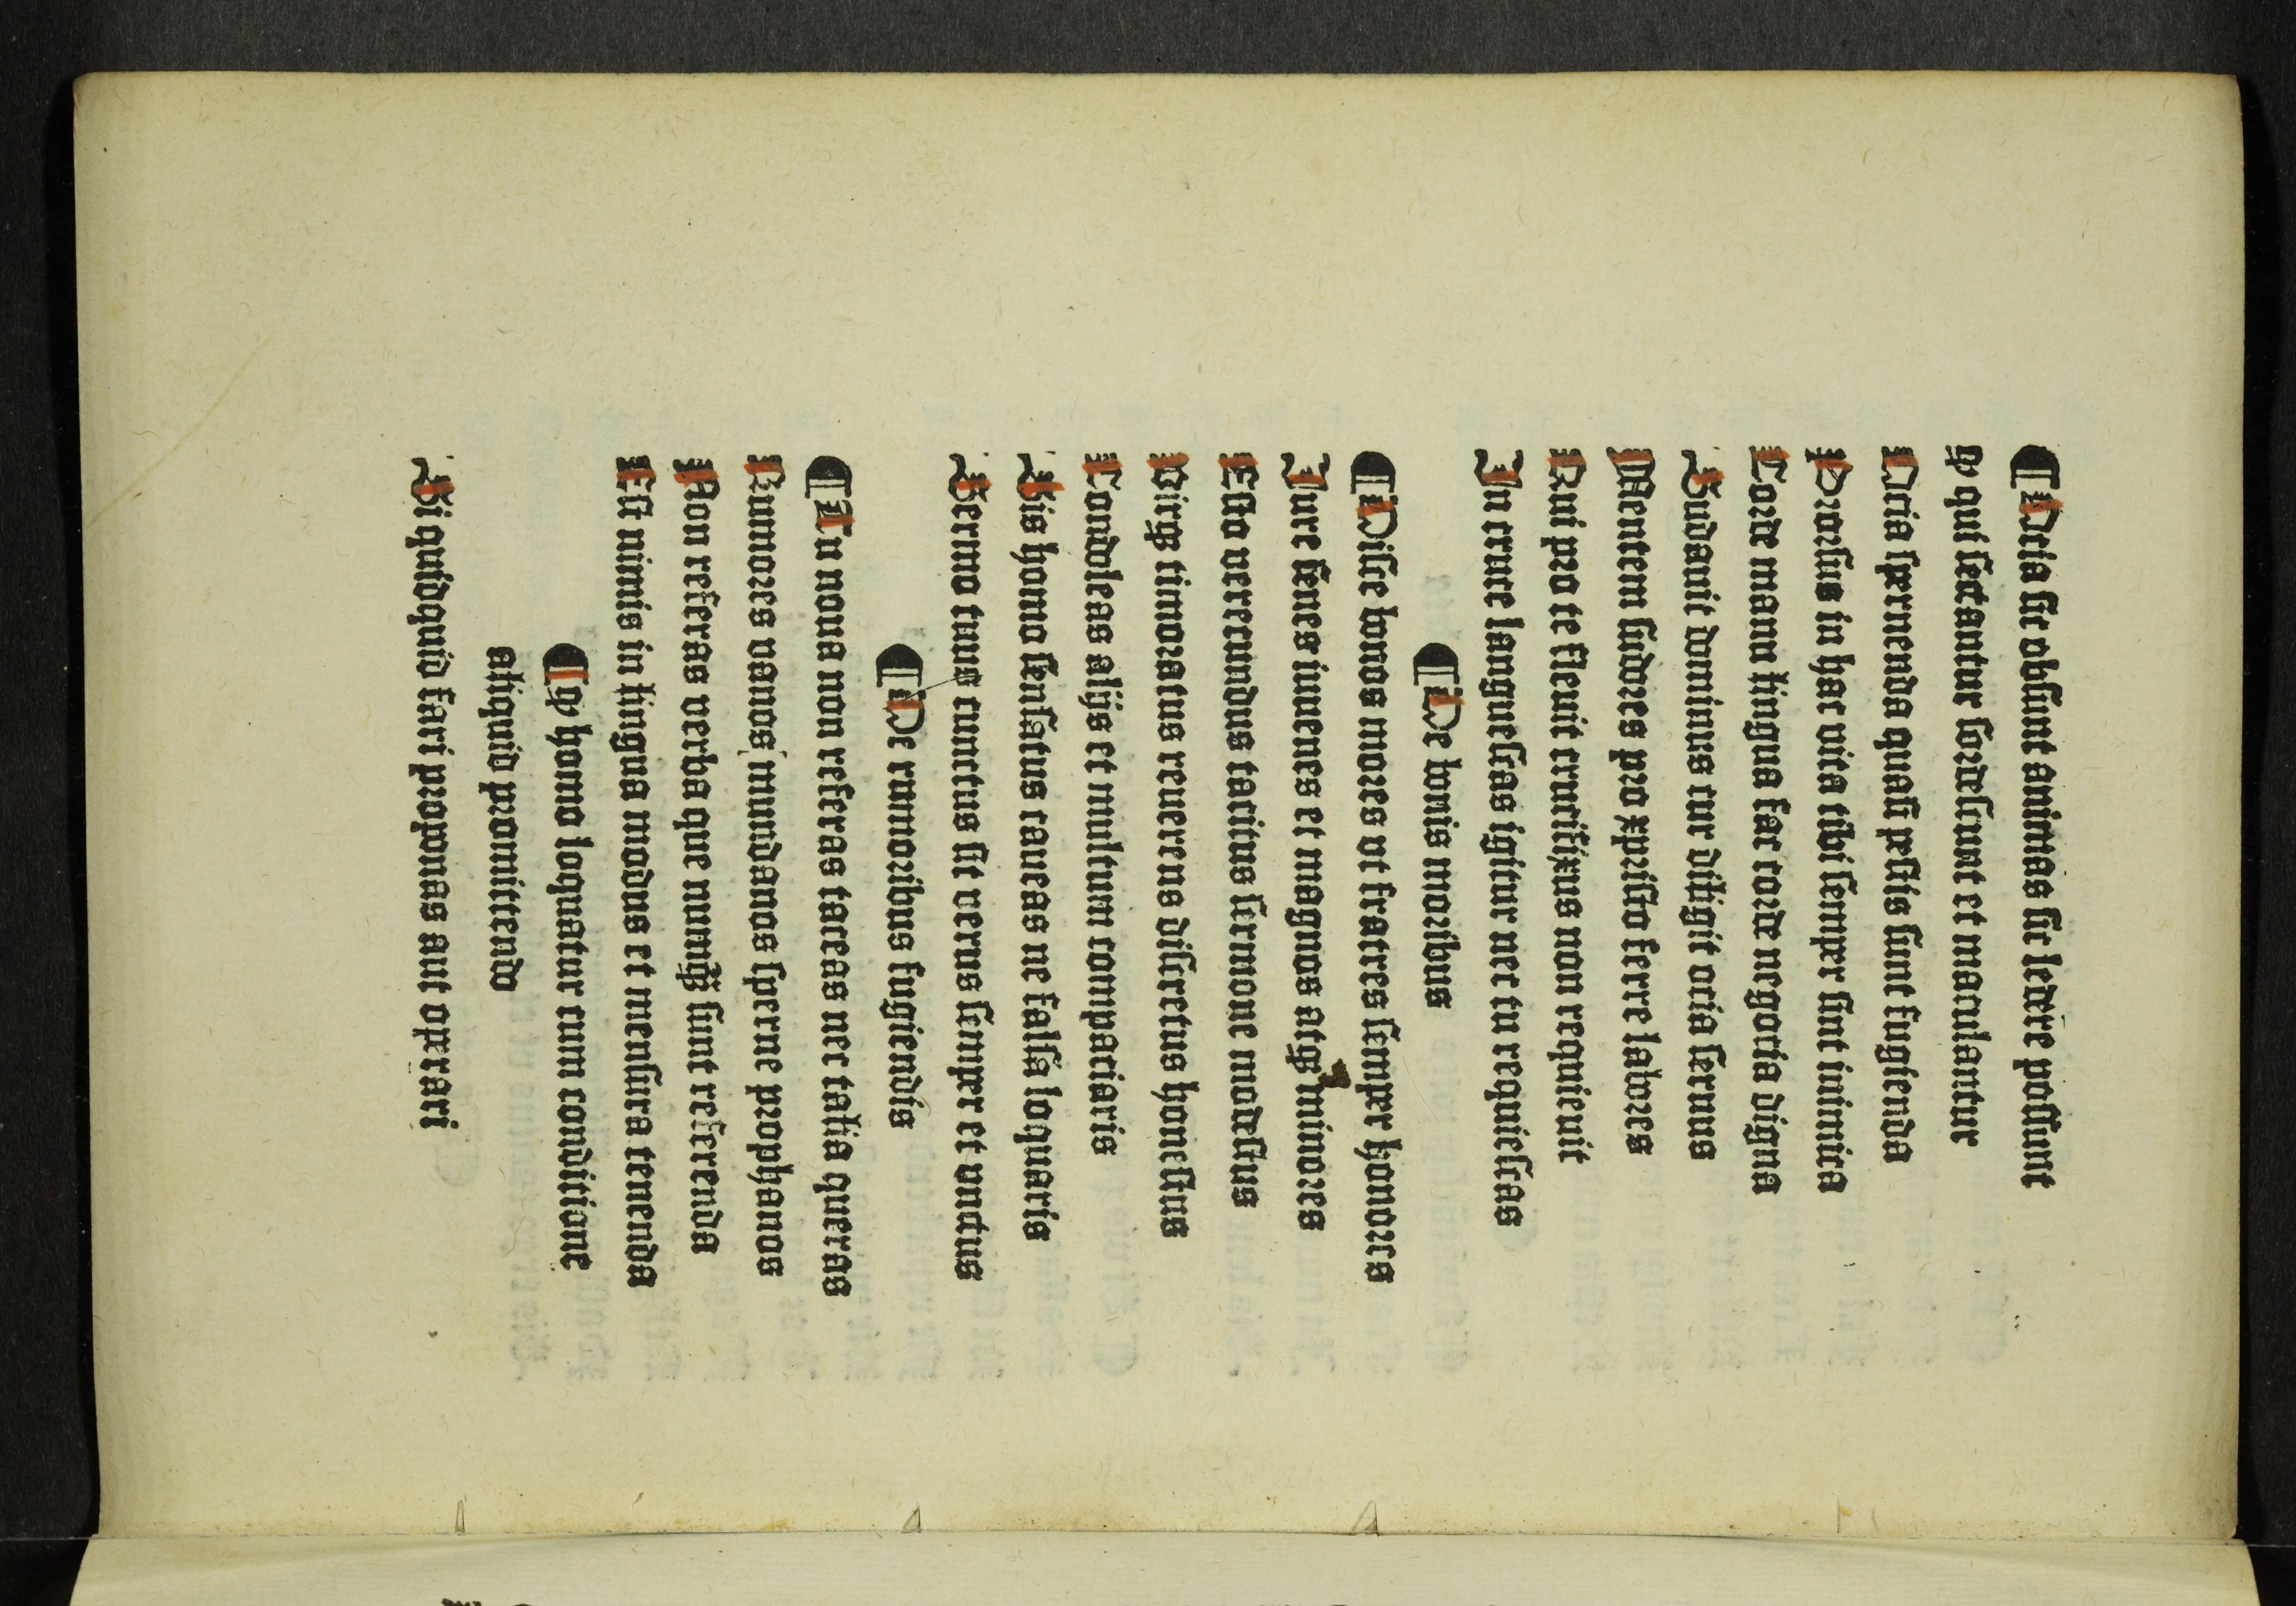 ¶ Ocia sic obsunt animas sic ledere possunt
ꝙ qui sectantur sordescunt et maculantur
Ocia spernenda quasi pestis sunt fugienda
Prorsus in hac vita tibi semper sint inimica
Corde manu lingua fac corde negocia digna
Sudauit dominus cur diligit ocia seruus
Mentem sudores pro xp̄isto ferre labores
Qui pro te fleuit crucifixus non requieuit
In cruce languescas igitur nec tu requiescas
¶ De bonis moribus
¶ Disce bonos mores ut fratres semper honores
Iure senes iuuenes et magnos atqȝ minores
Esto verecundus tacitus sermone modestus
Virgo timoratus reuerens discretus honestus
Condoleas alijs et multum compaciaris
Sis homo sensatus caueas ne falsa loquaris
Sermo tuus cunctus sit verus semper et unctus
¶ De rumoribus fugiendis
¶ Tu noua non referas taceas nec talia queras
Rumores vanos mundanos sperne prophanos
Non referas verba que nunqȝ sunt referenda
Est nimis in lingua modus et mensura tenenda
¶ ꝙ homo loquatur cum conditione
aliquid promittendo
Si quidquid fari proponas aut operari